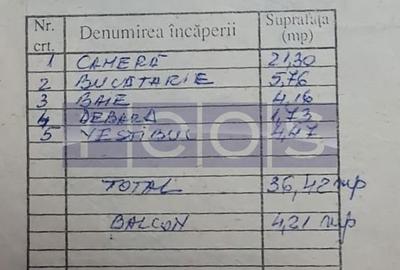 Nr. crt. Denumirea încăperii Suprafața (mp)
1 CAMERĂ 21,30
2 BUCATARIE 5,76
3 BAIE 4,16
4 DEBARA 1,73
5 VESTIBUL 4,47
TOTAL 36,42 mp
BALCON 4,21 mp